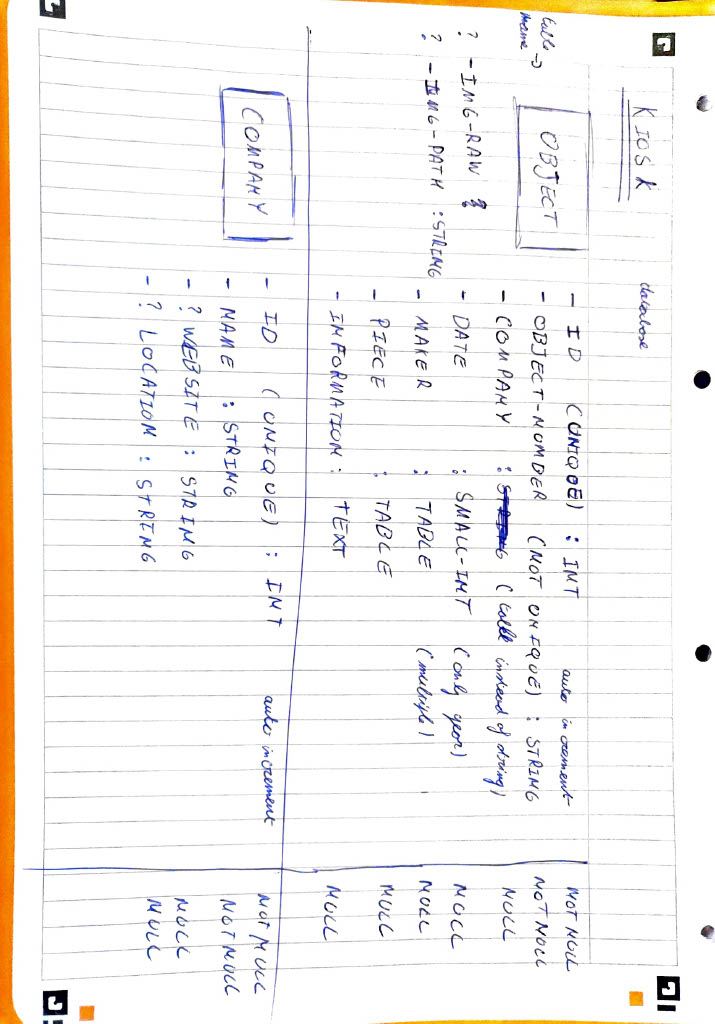 KIOSK database
table name →
OBJECT
- ID (UNIQUE) : INT auto increment NOT NULL
- OBJECT-NUMBER (NOT UNIQUE) : STRING NOT NULL
- COMPANY : STRING (table instead of string) NULL
- DATE : SMALL-INT (only year) NULL
- MAKER : TABLE (multiple) NULL
- PIECE : TABLE NULL
- INFORMATION : TEXT NULL
? - IMG-RAW ?
? - IMG-PATH : STRING
COMPANY
- ID (UNIQUE) : INT auto increment NOT NULL
- NAME : STRING NOT NULL
- ? WEBSITE : STRING NULL
- ? LOCATION : STRING NULL